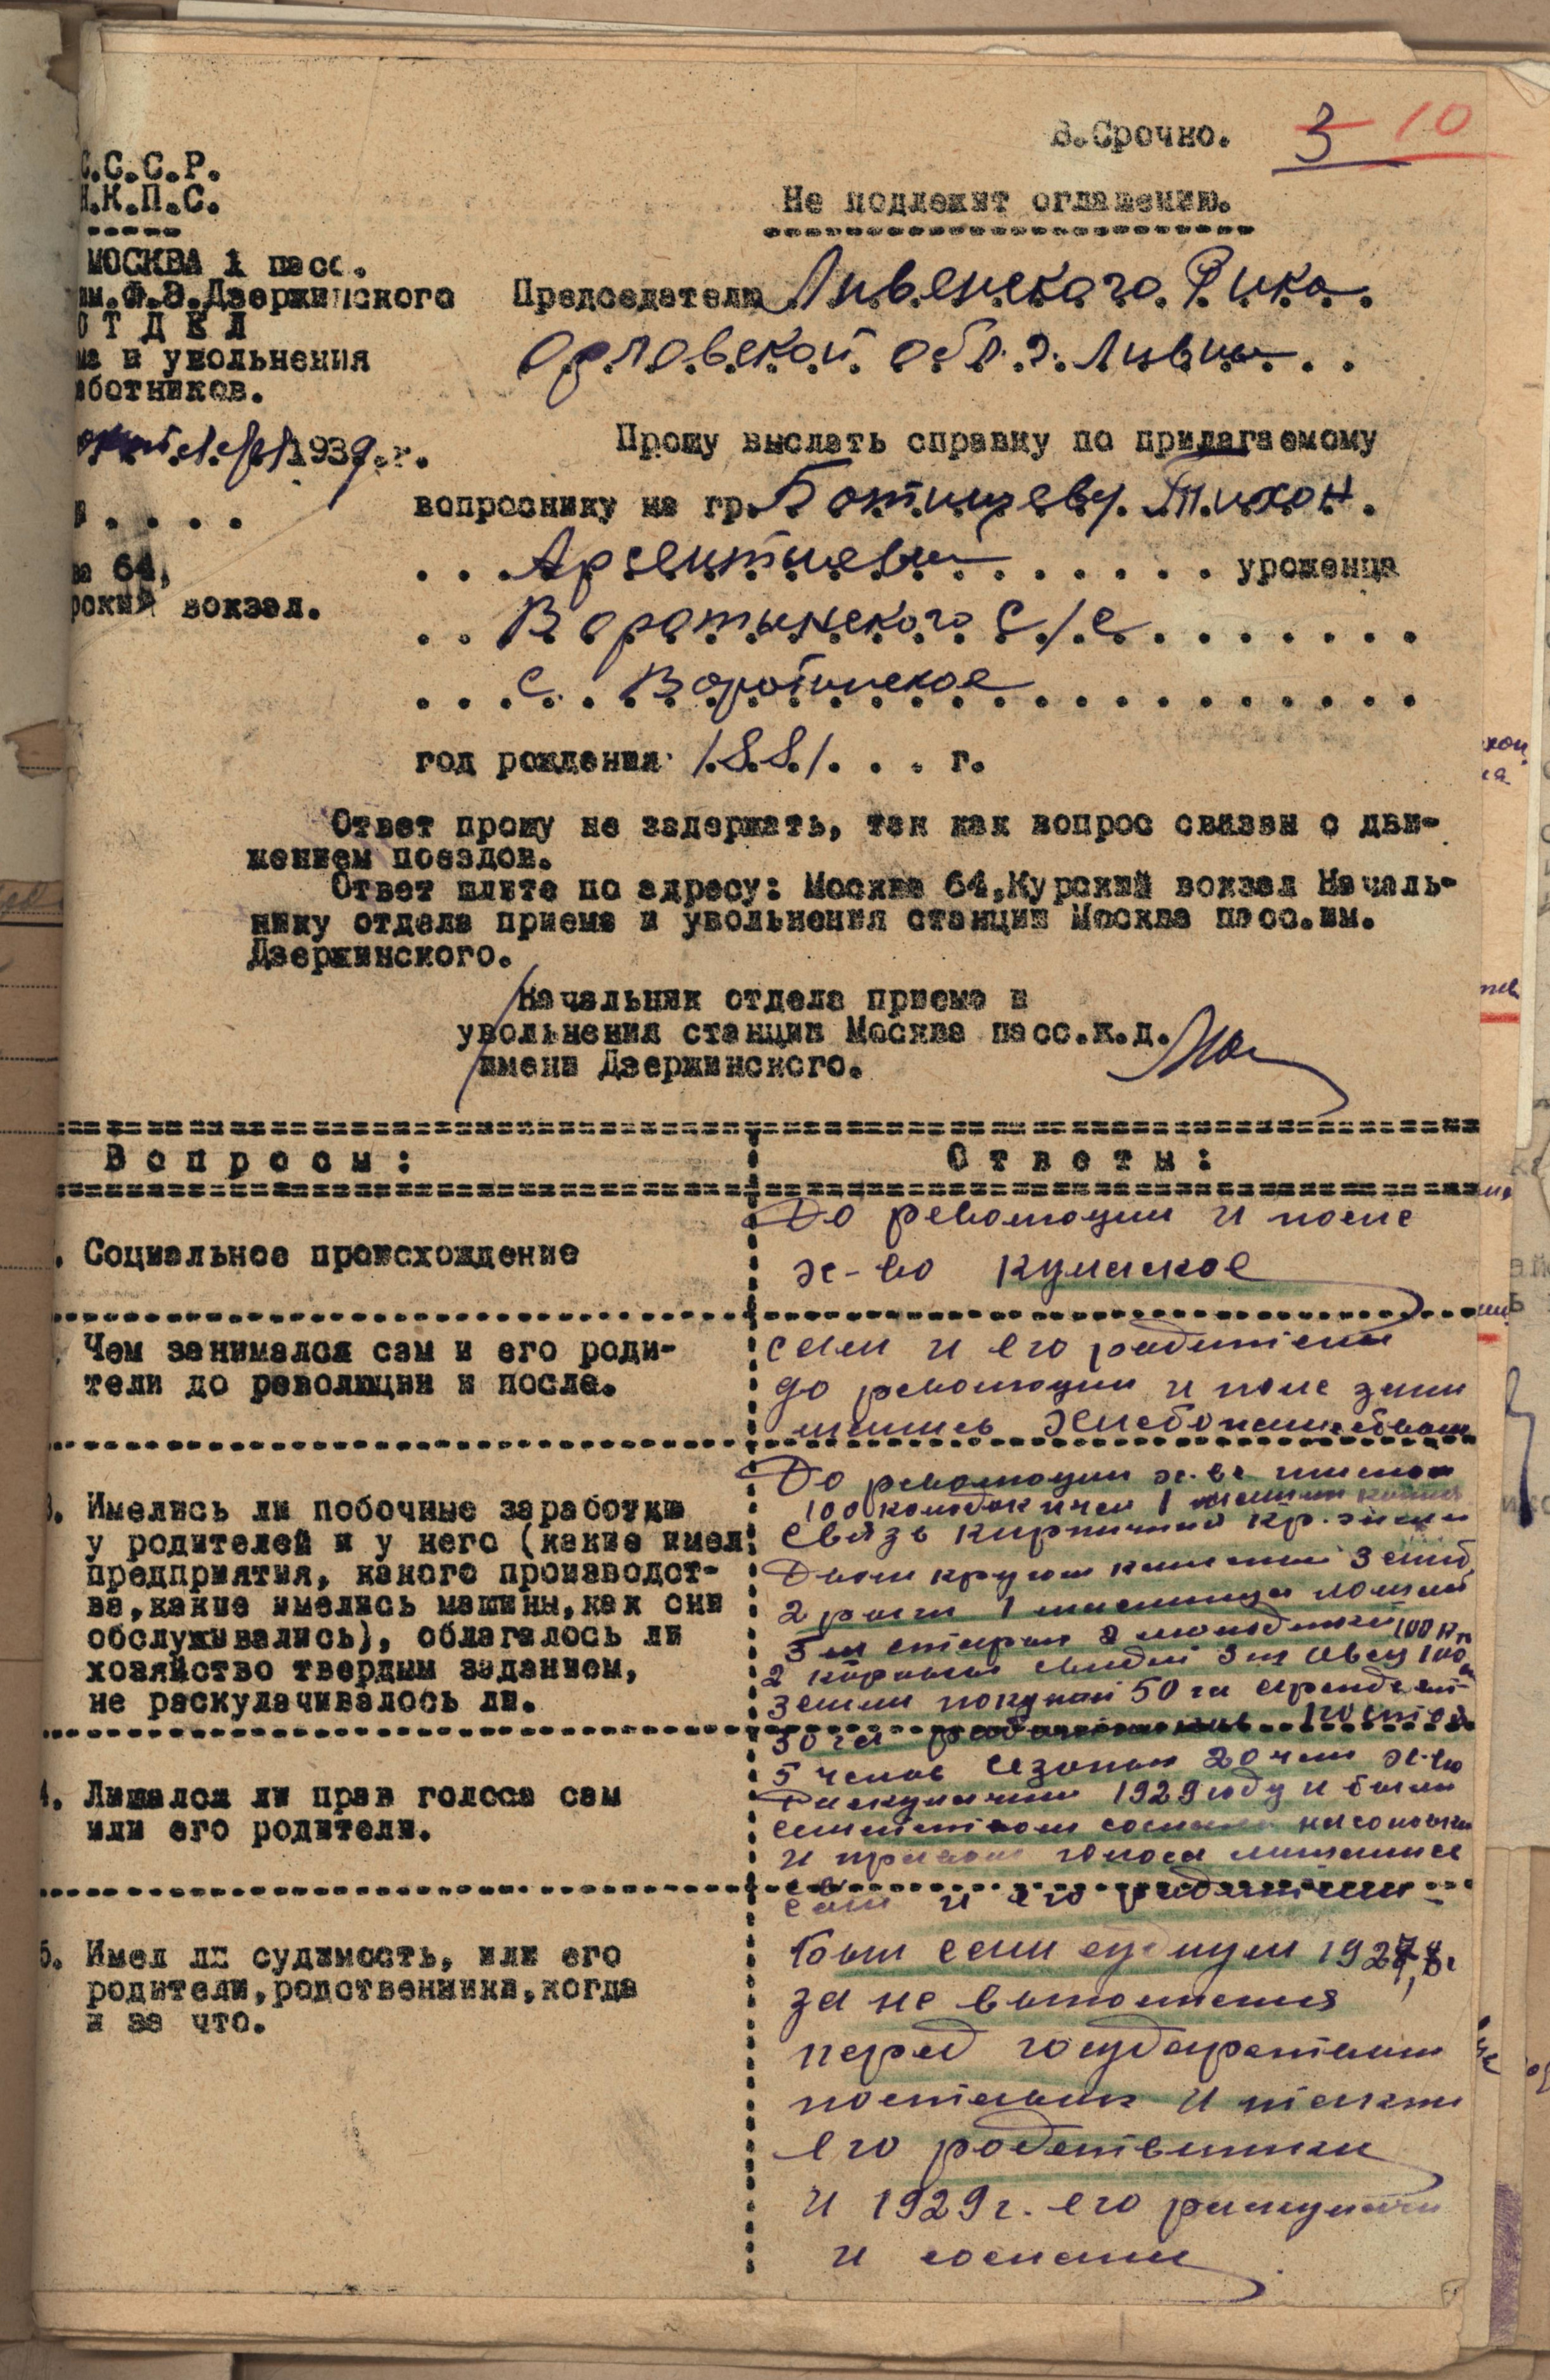 В.Срочно.
3 10
С.С.С.Р.
Н.К.П.С.
Не подлежит оглашению.
МОСКВА 1 пасс.
им.Ф.Э.Дзержинского
ОТДЕЛ
ма и увольнения
аботников.
Председателю Ливенского Рика
Орловской обл. г. Ливны
1939.г.
Прошу выслать справку по прилагаемому
вопроснику на гр. Ботищеву Тихон.
Арсентиеви уроженца
Воротынского С/с
с. Воротинское
ва 64,
рский вокзал.
год рождения 1881 . . . г.
Ответ прошу не задержать, так как вопрос связан с дви-
жением поездов.
Ответ шлите по адресу: Москва 64,Курский вокзал Началь-
нику отдела приема и увольнения станции Москва пасс.им.
Дзержинского.
Начальник отдела приема и
увольнения станции Москва пасс.К.д.
имени Дзержинского.
Вопросы:
Ответы:
. Социальное происхождение
До революции и после
х-во кулакское
Чем занимался сам и его роди-
тели до революции и после.
сам и его родители
до революции и после зани
мались Хлебопашеством
3. Имелись ли побочные заработки
у родителей и у него (какие имел
предприятия, какого производст-
ва,какие имелись машины,как они
обслуживались), облагалось ли
хозяйство твердым заданием,
не раскулачивалось ли.
До революции х-во имело
100 колодок пчел 1
Связь кирпичный кр.
Двои кругом 3
2 риги 1 лошадей
5 шт старых 2 молодых
2 коровы 3 шт Овец 100
земли покупной 50 га арендован
30 га
4. Лишался ли прав голоса сам
или его родители.
5 челов сезоных 20 чел х-во
Раскулачили 1929 году и были
семейством сосланы на соловки
и правом голоса лишались
сам и его родители
5. Имел ли судимость, или его
родители,родственники,когда
и за что.
Был сам судим
за не выполнения
перед государством
поставок и также
его родственики
и 1929г. его раскулачи
и сослали